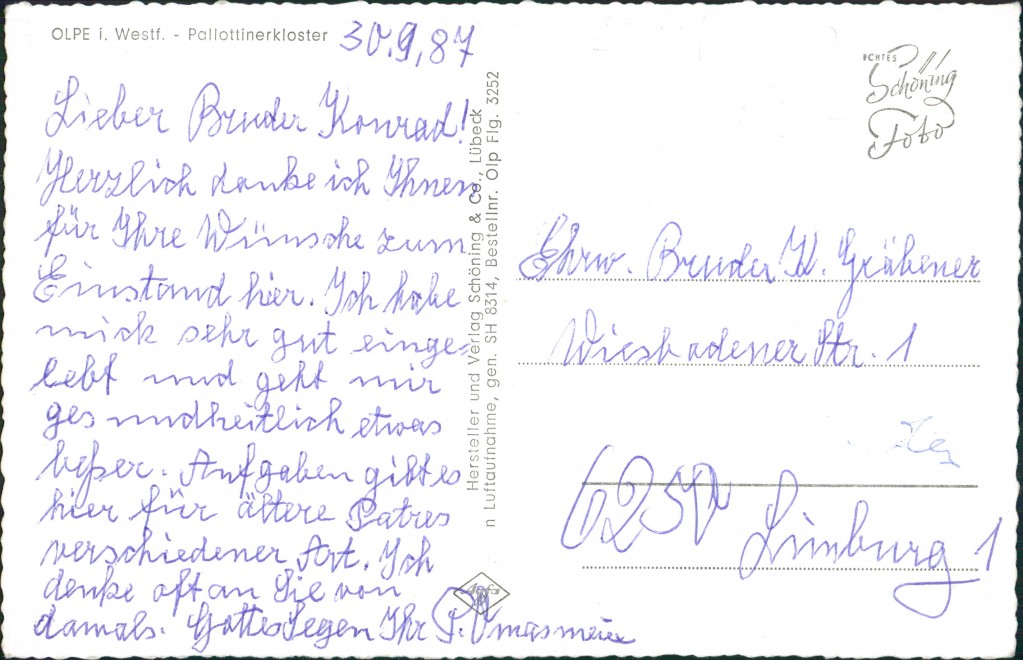 OLPE i. Westf. - Pallottinerkloster
30.9,87
Lieber Bruder Konrad!
Herzlich danke ich Ihnen
für Ihre Wünsche zum
Einstand hier. Ich habe
mich sehr gut einge=
lebt und geht mir
gesundheitlich etwas
beßer. Aufgaben gibt es
hier für ältere Patres
verschiedener Art. Ich
denke oft an Sie von
damals. Gottes Segen Ihr P.
Hersteller und Verlag Schöning & Co., Lübeck
n Luftaufnahme, gen. SH 8314, Bestellnr. Olp Flg. 3252
Agfa
ECHTES
Schöning
Foto
Ehrw. Bruder K. Gräbener
Wiesbadener Str. 1
6250
Limburg 1